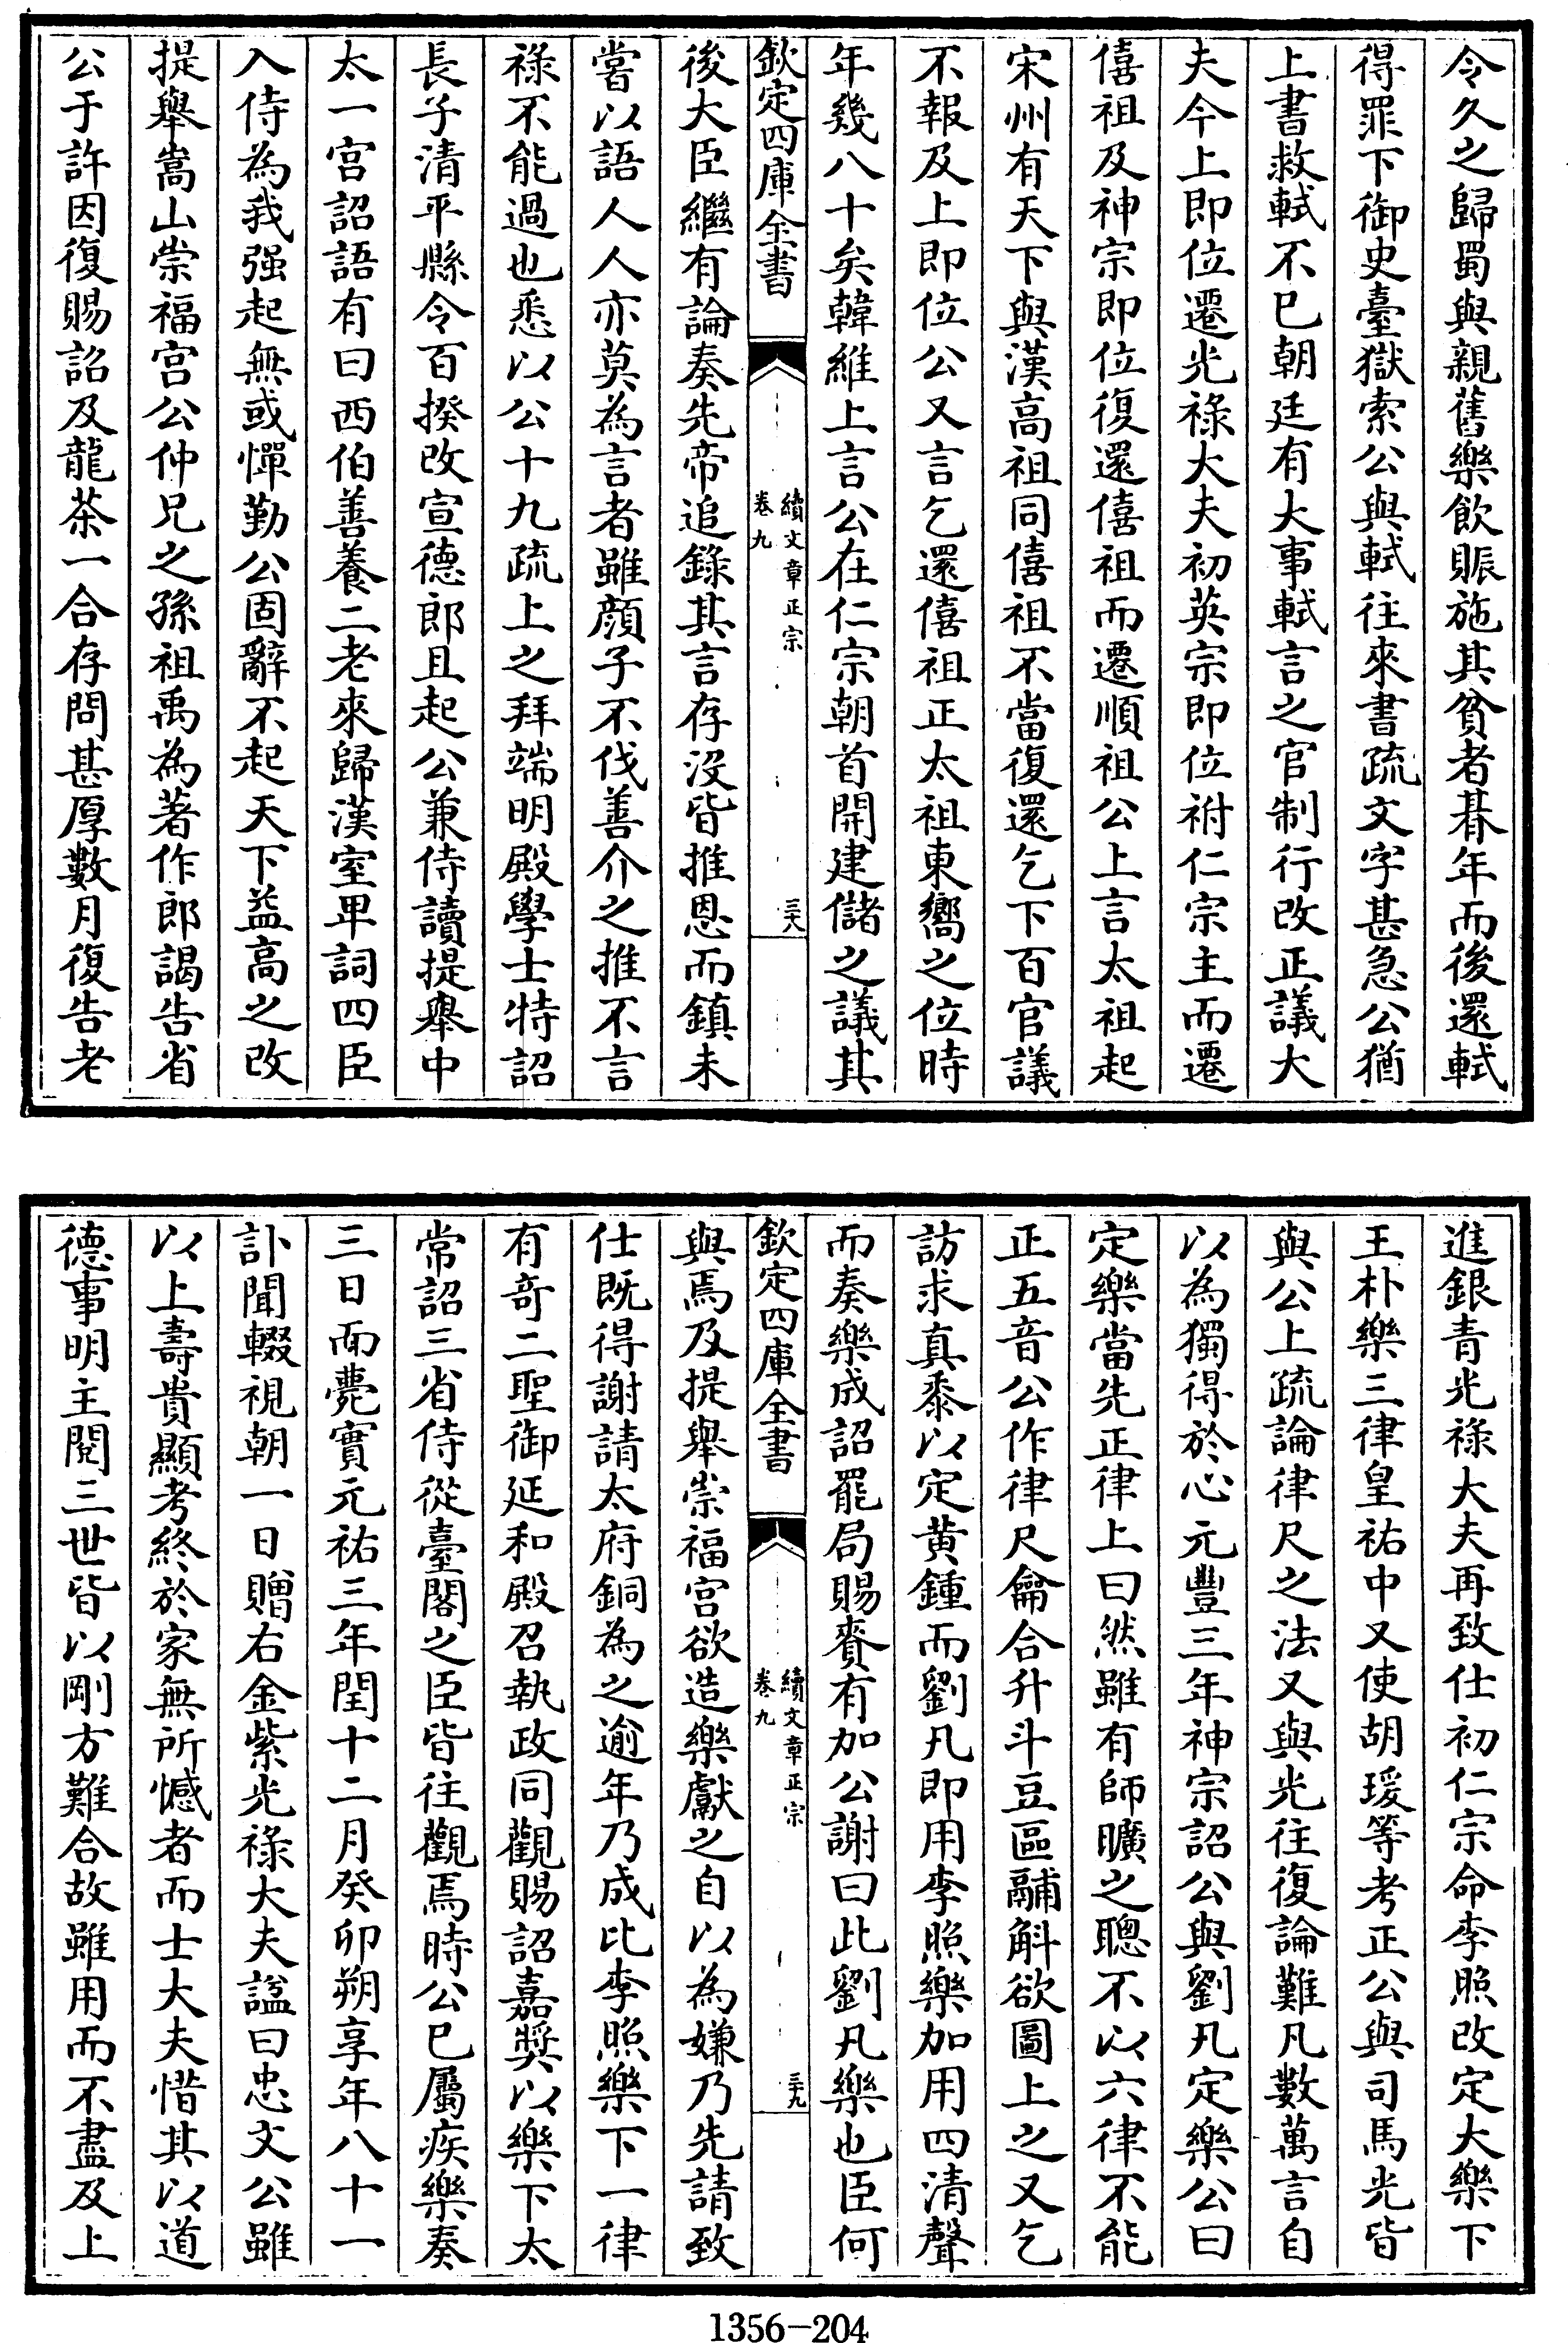 令久之歸蜀與親舊樂飲賑施其貧者朞年而後還軾
得罪下御史臺獄索公與軾往來書疏文字甚急公猶
上書救軾不已朝廷有大事軾言之官制行改正議大
夫今上即位遷光祿大夫初英宗即位祔仁宗主而遷
僖祖及神宗即位復還僖祖而遷順祖公上言太祖起
宋州有天下與漢高祖同僖祖不當復還乞下百官議
不報及上即位公又言乞還僖祖正太祖東嚮之位時
年幾八十矣韓維上言公在仁宗朝首開建儲之議其
欽定四庫全書
續文章正宗
卷九
三十八
後大臣繼有論奏先帝追錄其言存沒皆推恩而鎮未
嘗以語人人亦莫為言者雖顏子不伐善介之推不言
祿不能過也悉以公十九疏上之拜端明殿學士特詔
長子清平縣令百揆改宣德郎且起公兼侍讀提舉中
太一宮詔語有曰西伯善養二老來歸漢室卑詞四臣
入侍為我强起無或憚勤公固辭不起天下益高之改
提舉嵩山崇福宮公仲兄之孫祖禹為著作郎謁告省
公于許因復賜詔及龍茶一合存問甚厚數月復告老
進銀青光祿大夫再致仕初仁宗命李照改定大樂下
王朴樂三律皇祐中又使胡瑗等考正公與司馬光皆
與公上疏論律尺之法又與光往復論難凡數萬言自
以為獨得於心元豐三年神宗詔公與劉凡定樂公曰
定樂當先正律上曰然雖有師曠之聰不以六律不能
正五音公作律尺龠合升斗豆區鬴斛欲圖上之又乞
訪求真黍以定黄鍾而劉凡即用李照樂加用四清聲
而奏樂成詔罷局賜賚有加公謝曰此劉凡樂也臣何
欽定四庫全書
續文章正宗
卷九
三十九
與焉及提舉崇福宮欲造樂獻之自以為嫌乃先請致
仕既得謝請太府銅為之逾年乃成比李照樂下一律
有奇二聖御延和殿召執政同觀賜詔嘉奬以樂下太
常詔三省侍從臺閣之臣皆往觀焉時公已屬疾樂奏
三日而薨實元祐三年閏十二月癸卯朔享年八十一
訃聞輟視朝一日贈右金紫光祿大夫諡曰忠文公雖
以上壽貴顯考終於家無所憾者而士大夫惜其以道
德事明主閱三世皆以剛方難合故雖用而不盡及上
1356-204